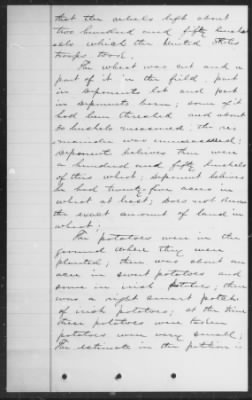 that the rebels left about
two hundred and fifty bush
els which the United States
troops took.
The wheat was cut and a
part of it in the field, part
in deponents lot and part
in deponents barn; some of it
had been threshed and about
bushels measured; the re-
mainder was unmeasured;
deponent believes there were
a hundred and fifty bushels
of this wheat; deponent believes
he had twenty five acres in
wheat at least; does not know
the exact amount of land in
wheat;
The potatoes were in the
ground where they were
planted; there was about an
acre in sweet potatoes and
some in irish potatoes; there
was a right smart patch
of irish potatoes; at the time
these potatoes were taken
potatoes were very small;
The estimate in the petition is